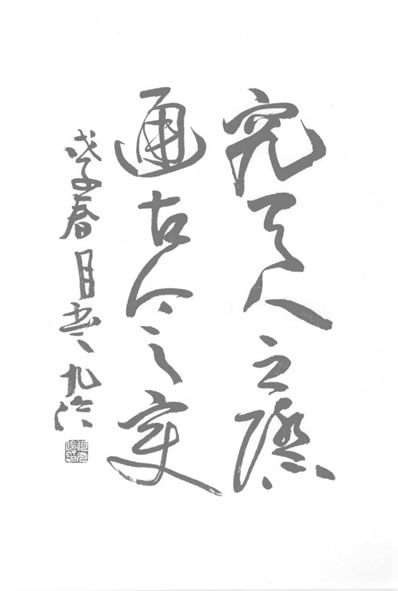 究天人之際
通古今之变
戊子春月書